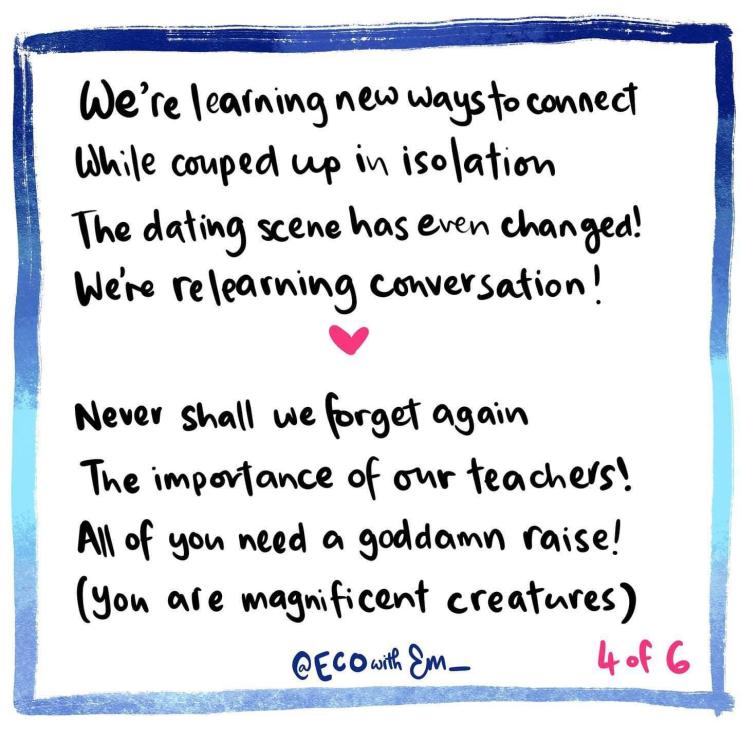 We're learning new ways to connect
While couped up in isolation
The dating scene has even changed!
We're relearning conversation!
Never shall we forget again
The importance of our teachers!
All of you need a goddamn raise!
(you are magnificent creatures)
@ECO with Em_
4 of 6